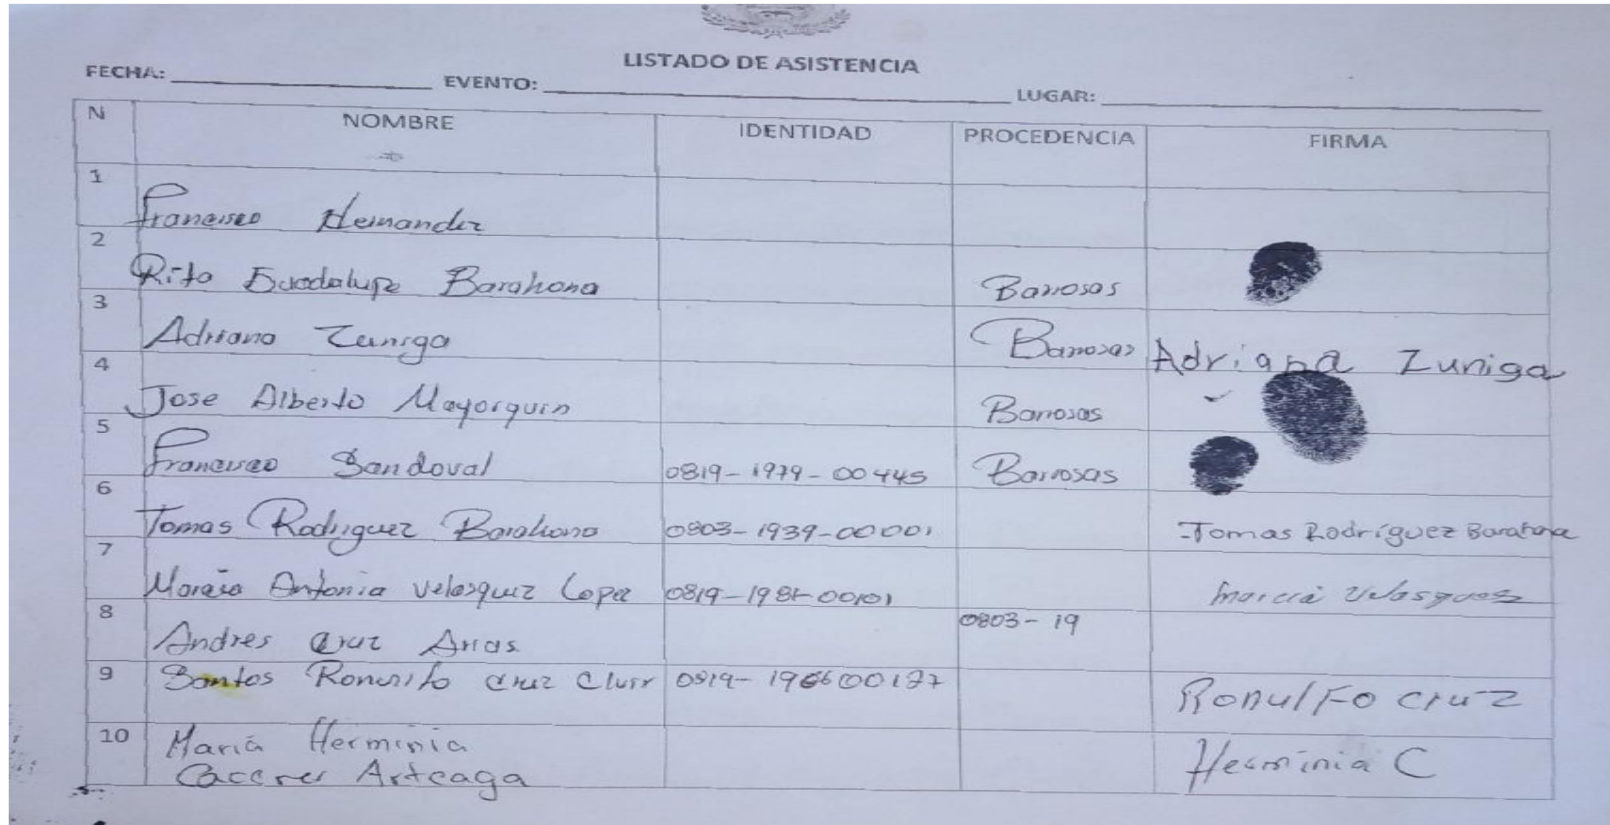 LISTADO DE ASISTENCIA
FECHA: EVENTO: LUGAR:
N NOMBRE IDENTIDAD PROCEDENCIA FIRMA
1 Francisco Hernandez
2 Rito Guadalupe Barahona Barrosas
3 Adriana Zuniga Barrosas Adriana Zuniga
4 Jose Alberto Mayorquin Barrosas
5 Francisco Sandoval 0819-1979-00445 Barrosas
6 Tomas Rodriguez Barahona 0803-1939-00001 Tomas Rodríguez Barahona
7 Antonia Velasquez Lopez 0819-1981-00101 Velasquez
8 Andres Cruz Arias 0803-19
9 Santos Cruz Ronulfo cruz
10 Maria Herminia
Caceres Arteaga Herminia C